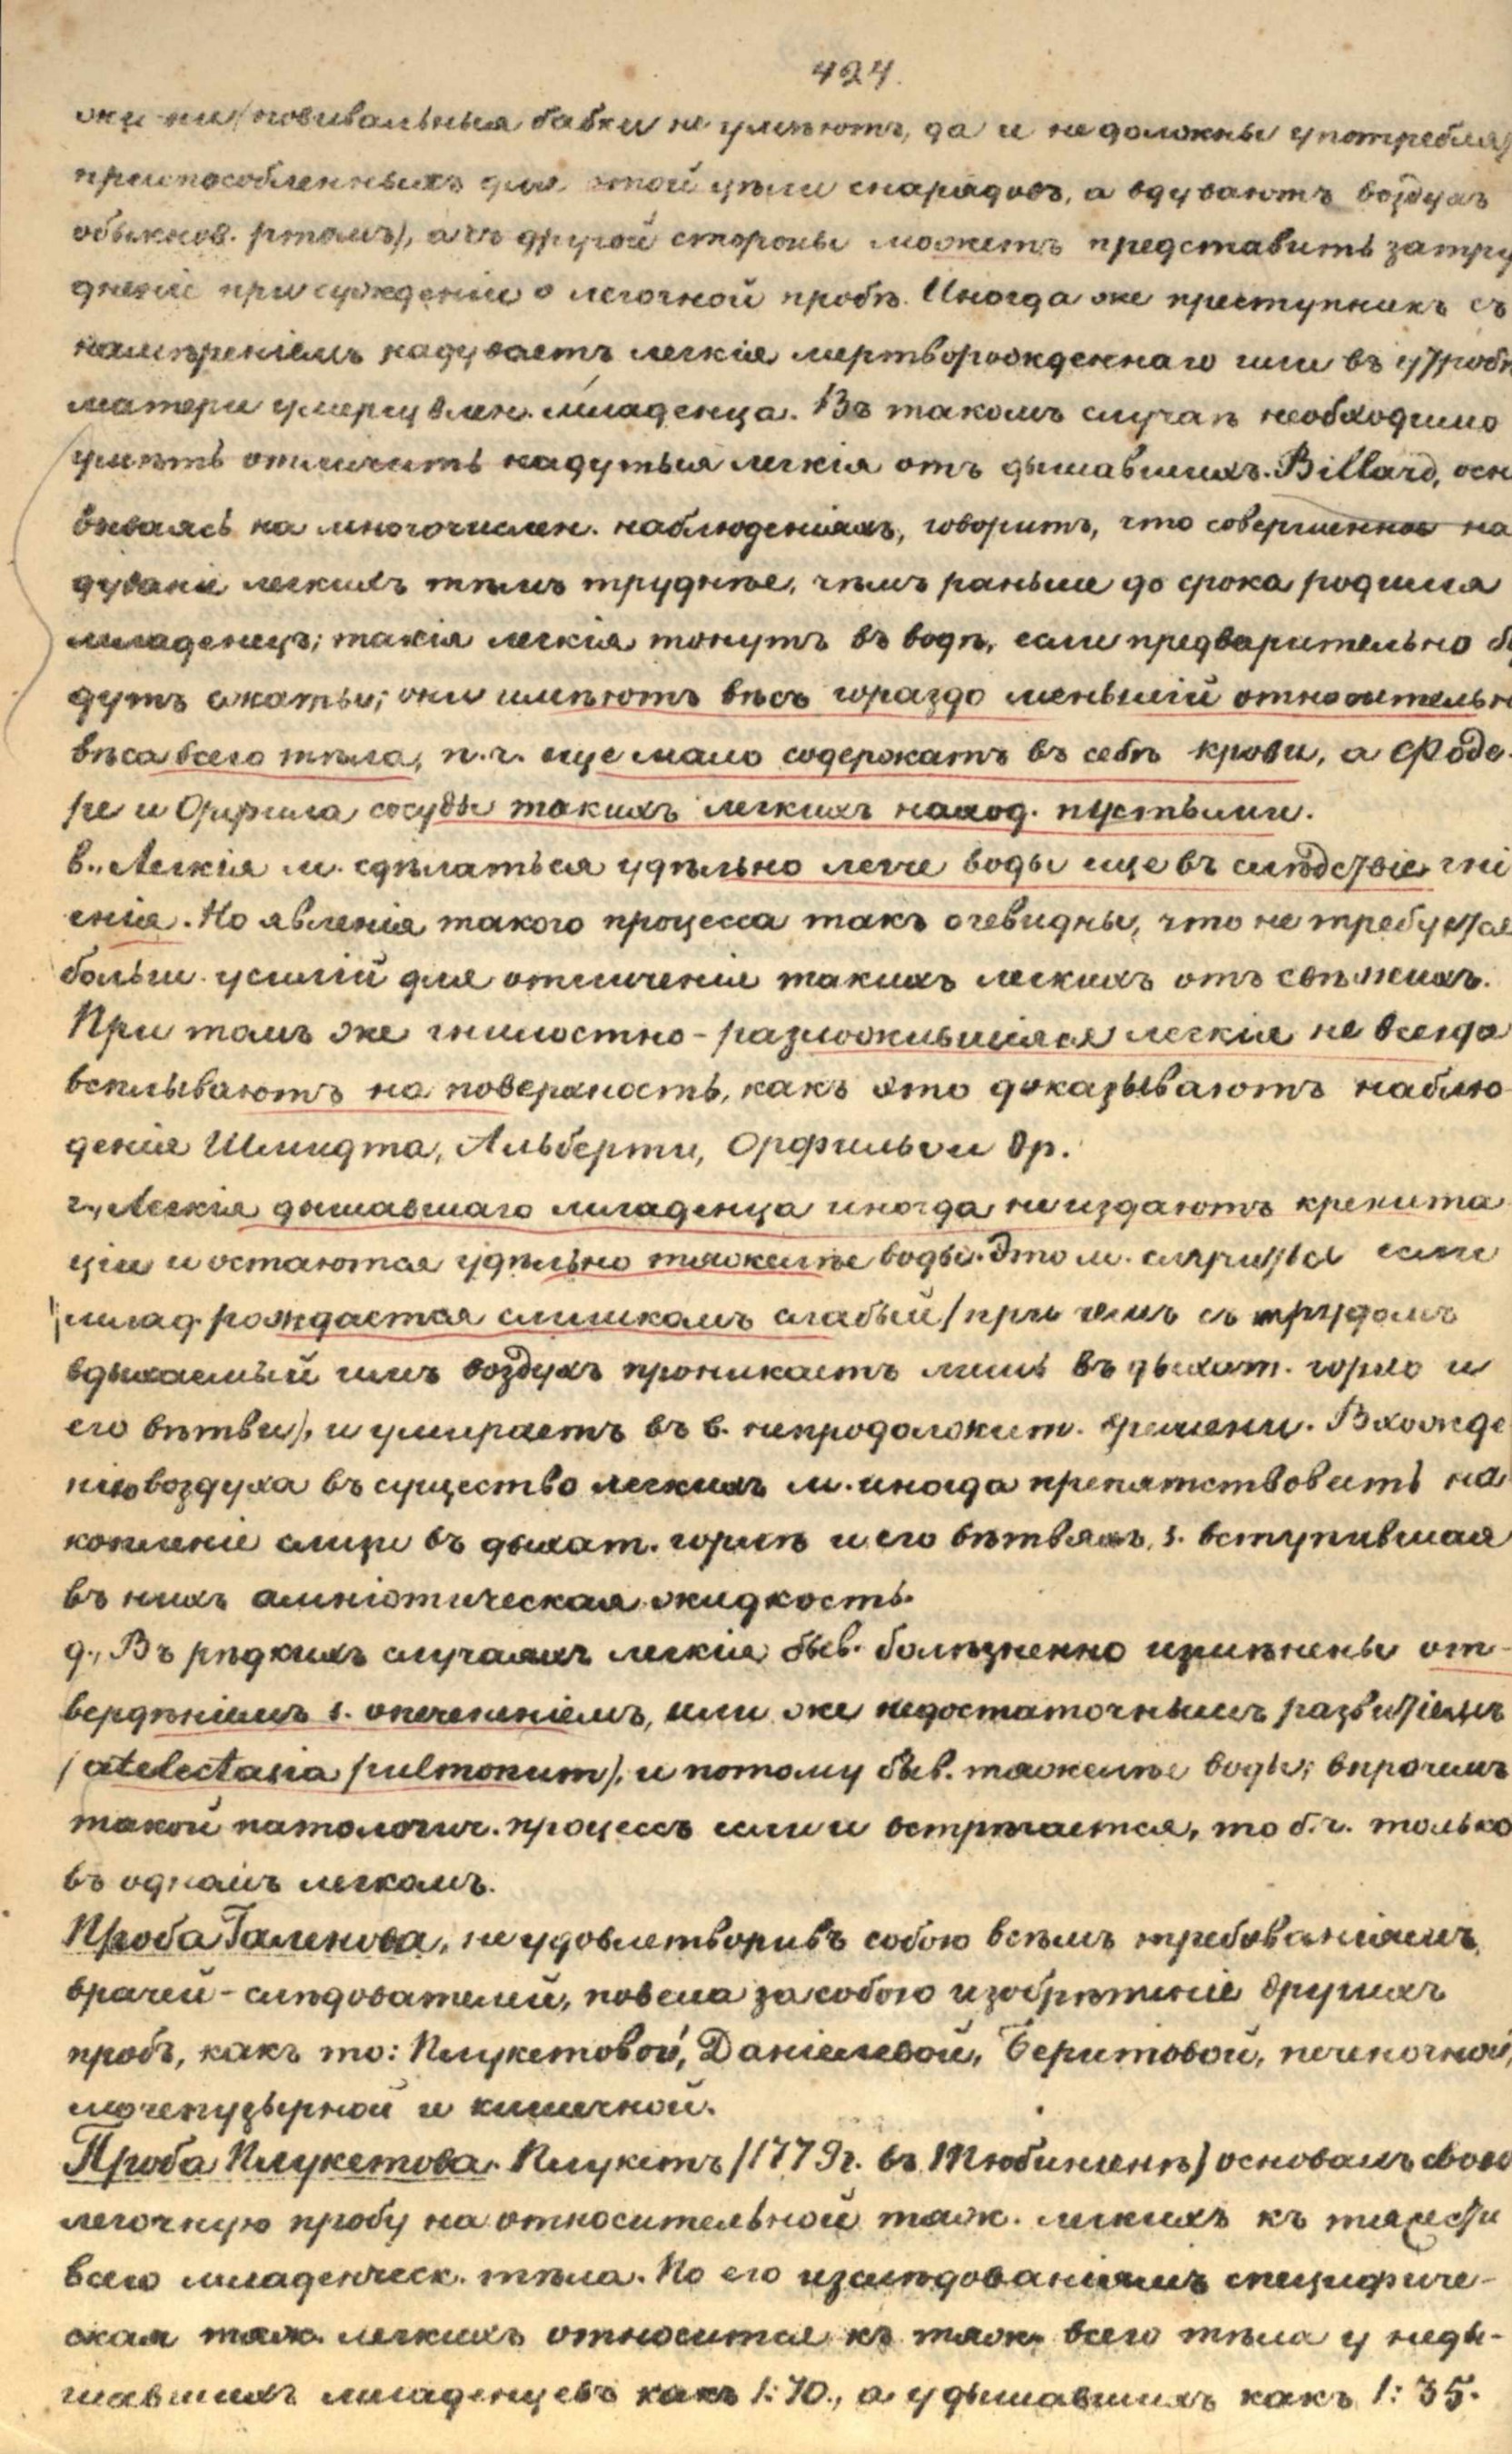 424.
повивальныя бабки не умѣютъ, да и не должны употребля
приспособленныхъ для этой цѣли снарядовъ, а вдуваютъ воздухъ
обыкнов. ртомъ), а съ другой стороны можетъ представить затру
дненіе при сужденіи о легочной пробѣ. Иногда же преступникъ съ
намѣреніемъ надуваетъ легкія мертворожденнаго или въ утробѣ
матери умерщвлен. младенца. Въ такомъ случаѣ необходимо
умѣть отличить надутыя легкія отъ дышавшихъ. Billard, осн
вываясь на многочислен. наблюденіяхъ, говоритъ, что совершенное на
дуваніе легкихъ тѣмъ труднѣе, чѣмъ раньше до срока родился
младенецъ; такія легкія тонутъ въ водѣ, если предварительно бу
дутъ сжаты; они имѣютъ вѣсъ гораздо меньшій относительно
вѣса всего тѣла, п.ч. еще мало содержатъ въ себѣ крови, а Фоде-
ре и Орфила сосуды такихъ легкихъ наход. пустыми.
в., Легкія м. сдѣлаться удѣльно легче воды еще въ слѣдствіе гні
енія. Но явленія такого процесса такъ очевидны, что не требуется
больш. усилій для отличенія такихъ легкихъ отъ свѣжихъ.
При томъ же гнилостно-разложившіяся легкія не всегда
всплываютъ на поверхность, какъ это доказываютъ наблю-
денія Шмидта, Альберти, Орфилы и др.
г., Легкія дышавшаго младенца иногда не издаютъ крепита
ціи и остаются удѣльно тяжелѣе воды. Это м. случиться если
млад. рождается слишкомъ слабый (при чемъ съ трудомъ
вдыхаемый имъ воздухъ проникаетъ лишь въ дыхат. горло и
его вѣтви), и умираетъ въ в. непродолжит. времени. Вхожде
нію воздуха въ существо легкихъ м. иногда препятствовать на
копленіе слизи въ дыхат. горлѣ и его вѣтвяхъ, s. вступившая
въ нихъ амніотическая жидкость.
д., Въ рѣдкихъ случаяхъ легкія быв. болѣзненно измѣнены от-
вердѣніемъ s. опечененіемъ, или же недостаточнымъ развитіемъ
(atelectasia pulmonum), и потому быв. тяжелѣе воды; впрочемъ
такой патологич. процессъ если и встрѣчается, то б.ч. только
въ одномъ легкомъ.
Проба Галенова, не удовлетворивъ собою всѣмъ требованіямъ
врачей-слѣдователей, повела за собою изобрѣтеніе другихъ
пробъ, какъ то: Плукетовой, Даніелевой, Бернтовой, печеночной,
мочепузырной и кишечной.
Проба Плукетова. Плукетъ (1779 г. въ Тюбингенѣ) основалъ свою
легочную пробу на относительной тяж. легкихъ къ тяжести
всего младенческ. тѣла. По его изслѣдованіямъ специфиче-
ская тяж. легкихъ относится къ тяж. всего тѣла у неды-
шавшихъ младенцевъ какъ 1:70., а у дышавшихъ какъ 1:35.